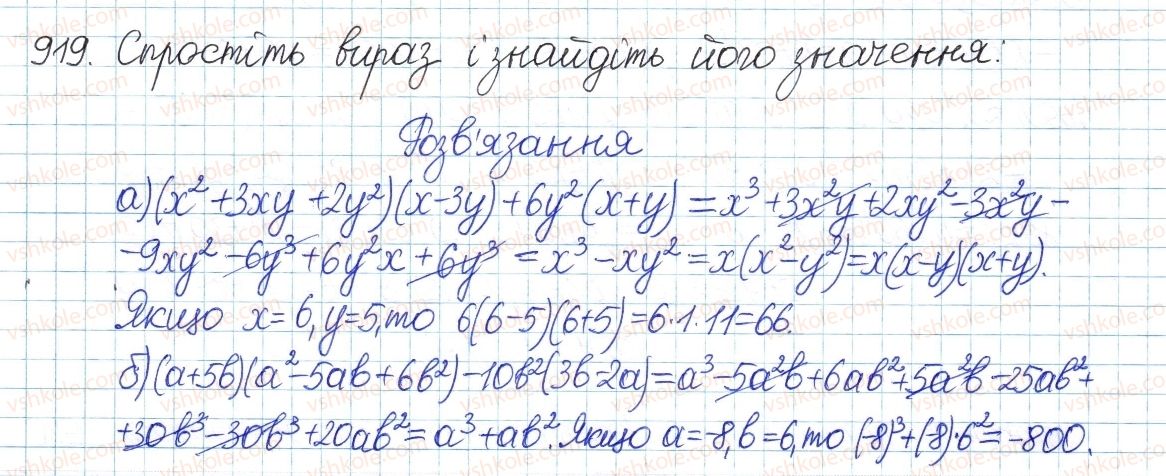 919. Спростіть вираз і знайдіть його значення:
Розв'язання
а) (x² + 3xy + 2y²)(x - 3y) + 6y²(x + y) = x³ + 3x²y + 2xy² - 3x²y -
- 9xy² - 6y³ + 6y²x + 6y³ = x³ - xy² = x(x² - y²) = x(x - y)(x + y).
Якщо x = 6, y = 5, то 6(6 - 5)(6 + 5) = 6·1·11 = 66.
б) (a + 5b)(a² - 5ab + 6b²) - 10b²(3b - 2a) = a³ - 5a²b + 6ab² + 5a²b - 25ab² +
+ 30b³ - 30b³ + 20ab² = a³ + ab². Якщо a = -8, b = 6, то (-8)³ + (-8)·6² = -800.